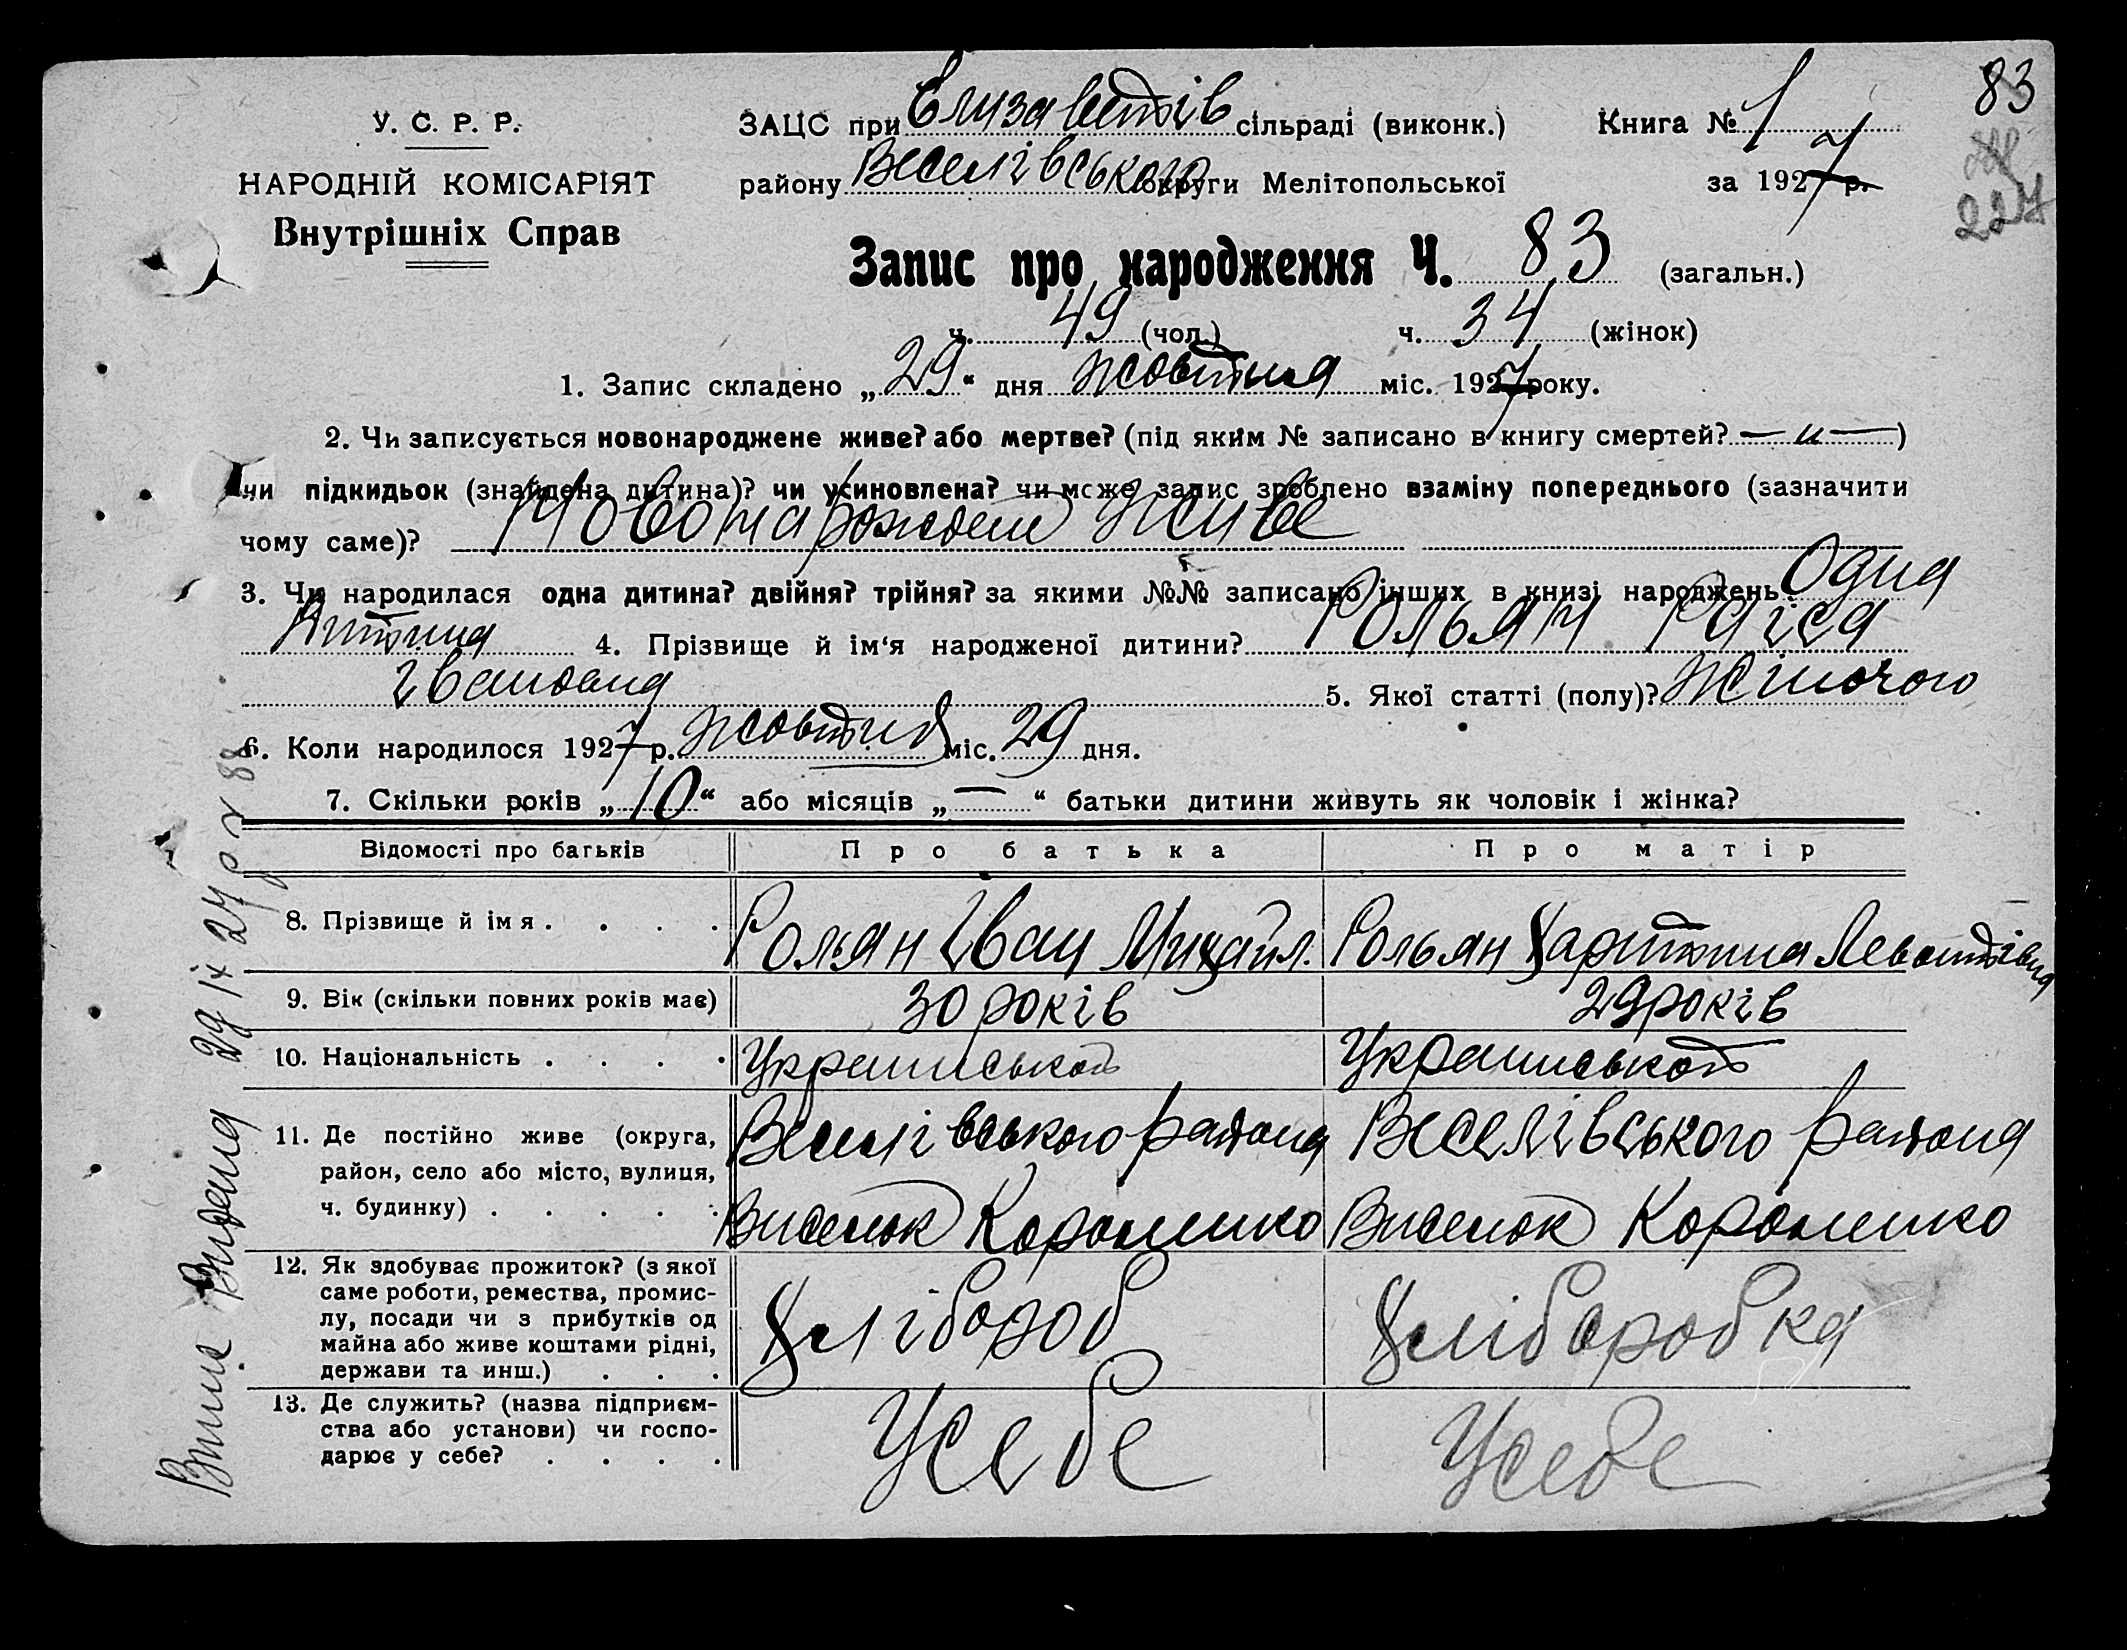 83
У. С. Р. Р.
НАРОДНІЙ КОМІСАРІЯТ
Внутрішніх Справ
ЗАЦС при Єлизаветів сільраді (виконк.)
Книга № 1
району Веселівського округи Мелітопольської
за 1927 р.
227
Запис про народження Ч. 83 (загальн.)
ч. 49 (чол.) ч. 34 (жінок)
1. Запис складено „29“ дня жовтня міс. 1927 року.
2. Чи записується новонароджене живе? або мертве? (під яким № записано в книгу смертей? — „ —)
чи підкидьок (знайдена дитина)? чи усиновлена? чи може запис зроблено взаміну попереднього (зазначити
чому саме)? Новонарождене живе
3. Чи народилася одна дитина? двійня? трійня? за якими №№ записано інших в книзі народжень. Одна
дитина 4. Прізвище й ім‘я народженої дитини? Рольян Раїса
Івановна 5. Якої статті (полу)? жіночого
6. Коли народилося 1927 р. жовтня міс. 29 дня.
7. Скільки років „10“ або місяців „—“ батьки дитини живуть як чоловік і жінка?
Відомості про батьків Про батька Про матір
8. Прізвище й ім я . . . . Рольян Іван Михайл. Рольян Харитина Левонтівна
9. Вік (скільки повних років має) 30 років 29 років
10. Національність . . . . Українськой Українськой
11. Де постійно живе (округа,
район, село або місто, вулиця,
ч. будинку) . . . . .
Веселівського района Веселівського района
Виселок Короленко Виселок Короленко
12. Як здобуває прожиток? (з якої
саме роботи, ремества, промис-
лу, посади чи з прибутків од
майна або живе коштами рідні,
держави та инш.) . . .
Хлібороб Хлібаробка
13. Де служить? (назва підприєм-
ства або установи) чи госпо-
дарює у себе? . . . .
У себе У себе